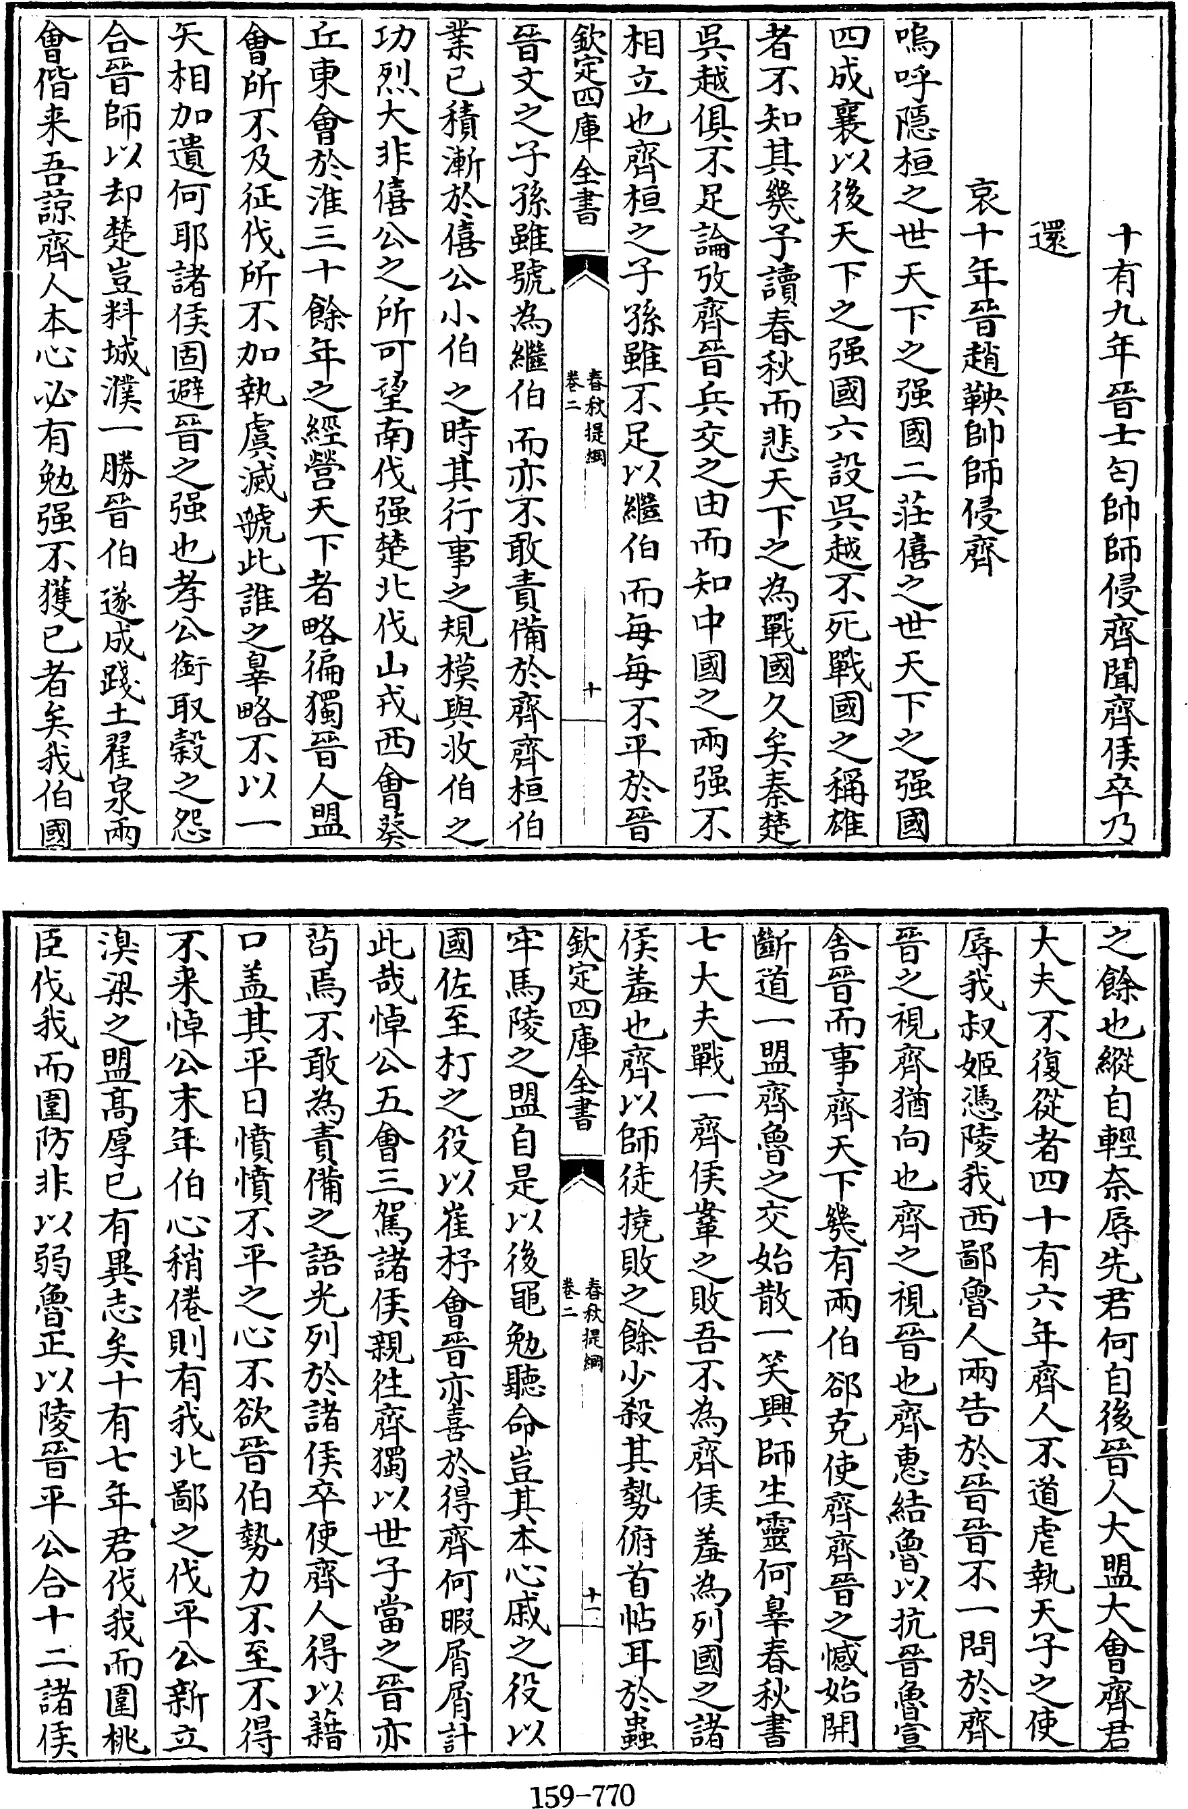 十有九年晉士匄帥師侵齊聞齊侯卒乃
還
哀十年晉趙鞅帥師侵齊
嗚呼隱桓之世天下之强國二莊僖之世天下之强國
四成襄以後天下之强國六設吳越不死戰國之稱雄
者不知其㡬子讀春秋而悲天下之為戰國久矣秦楚
吳越俱不足論攷齊晉兵交之由而知中國之兩强不
相立也齊桓之子孫雖不足以繼伯而每每不平於晉
欽定四庫全書
春秋提綱
卷二
十
晉文之子孫雖號為繼伯而亦不敢責備於齊齊桓伯
業已積漸於僖公小伯之時其行事之規模與汝伯之
功烈大非僖公之所可望南伐强楚北伐山戎西會葵
丘東會於淮三十餘年之經營天下者略徧獨晉人盟
會所不及征伐所不加執虞滅虢此誰之辠略不以一
矢相加遺何耶諸侯固避晉之强也孝公銜取榖之怨
合晉師以却楚豈料城濮一勝晉伯遂成踐土翟泉兩
會偕来吾諒齊人本心必有勉强不獲已者矣我伯國
之餘也縱自輕奈辱先君何自後晉人大盟大會齊君
大夫不復從者四十有六年齊人不道虐執天子之使
辱我叔姬憑陵我西鄙魯人兩告於晉晉不一問於齊
晉之視齊猶向也齊之視晉也齊惠結魯以抗晉魯宣
舍晉而事齊天下㡬有兩伯郤克使齊齊晉之憾始開
斷道一盟齊魯之交始散一笑興師生靈何辠春秋書
七大夫戰一齊侯鞌之敗吾不為齊侯羞為列國之諸
侯羞也齊以師徒撓敗之餘少殺其勢俯首帖耳於蟲
欽定四庫全書
春秋提綱
卷二
十一
牢馬陵之盟自是以後黽勉聽命豈其本心戚之役以
國佐至打之役以崔杼會晉亦喜於得齊何暇屑屑計
此哉悼公五會三駕諸侯親徃齊獨以世子當之晉亦
茍焉不敢為責備之語光列於諸侯卒使齊人得以藉
口盖其平日憤憤不平之心不欲晉伯勢力不至不得
不来悼公末年伯心稍倦則有我北鄙之伐平公新立
湨梁之盟髙厚已有異志矣十有七年君伐我而圍桃
臣伐我而圍防非以弱魯正以陵晉平公合十二諸侯
159-770